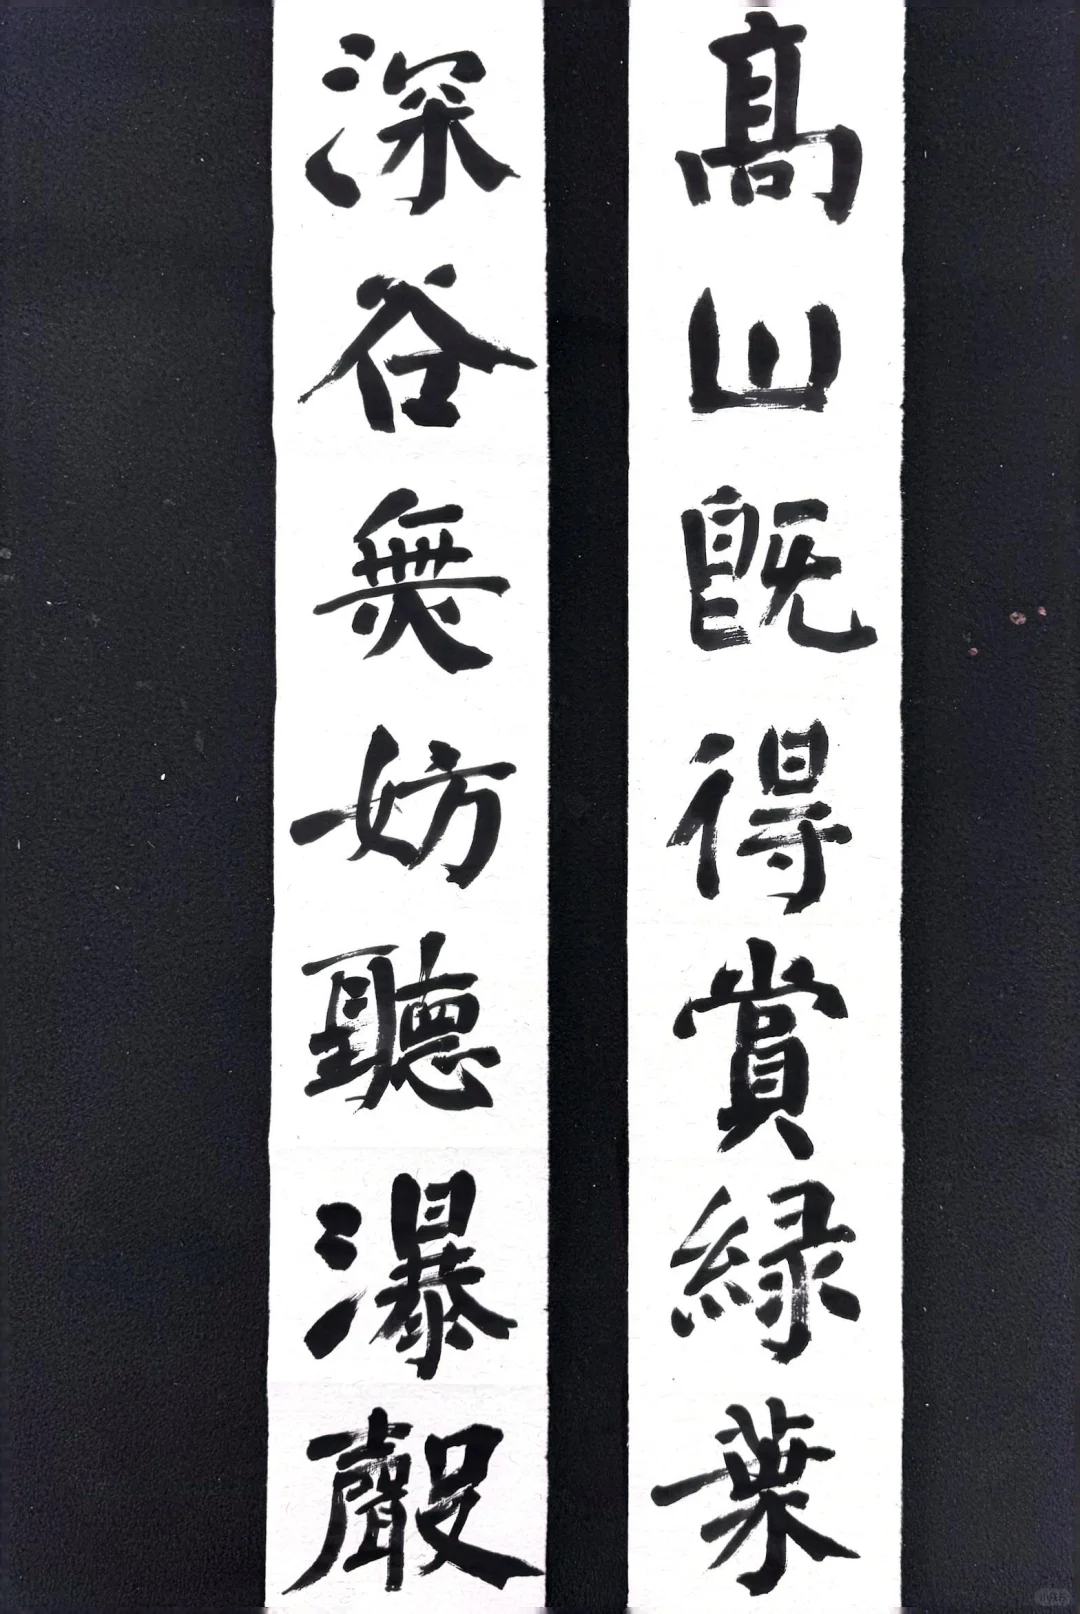 高山既得賞緑葉
深谷無妨聽瀑聲